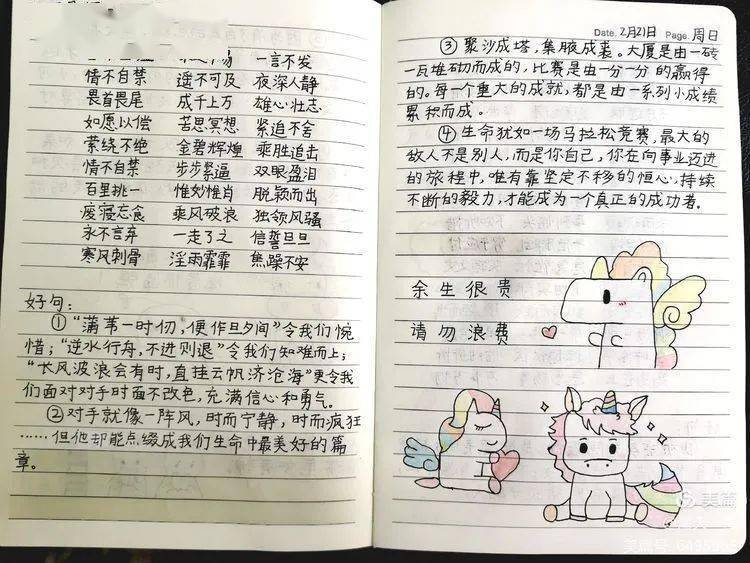 一言不发
情不自禁 遥不可及 夜深人静
畏首畏尾 成千上万 雄心壮志
如愿以偿 苦思冥想 紧追不舍
萦绕不绝 金碧辉煌 乘胜追击
情不自禁 步步紧逼 双眼盈泪
百里挑一 惟妙惟肖 脱颖而出
废寝忘食 乘风破浪 独领风骚
永不言弃 一走了之 信誓旦旦
寒风刺骨 淫雨霏霏 焦躁不安
好句:
①“蒲苇一时仞,便作旦夕间”令我们惋
惜;“逆水行舟,不进则退”令我们知难而上;
“长风波浪会有时,直挂云帆济沧海”更令我
们面对对手时面不改色,充满信心和勇气。
②对手就像一阵风,时而宁静,时而疯狂
……但他却能点缀成我们生命中最美好的篇
章。
Date. 2月21日 Page. 周日
③聚沙成塔,集腋成裘。大厦是由一砖
一瓦堆砌而成的,比赛是由一分一分的赢得
的。每一个重大的成就,都是由一系列小成绩
累积而成。
④生命犹如一场马拉松竞赛,最大的
敌人不是别人,而是你自己,你在向事业迈进
的旅程中,唯有靠坚定不移的恒心,持续
不断的毅力,才能成为一个真正的成功者。
余生很贵
请勿浪费
美篇